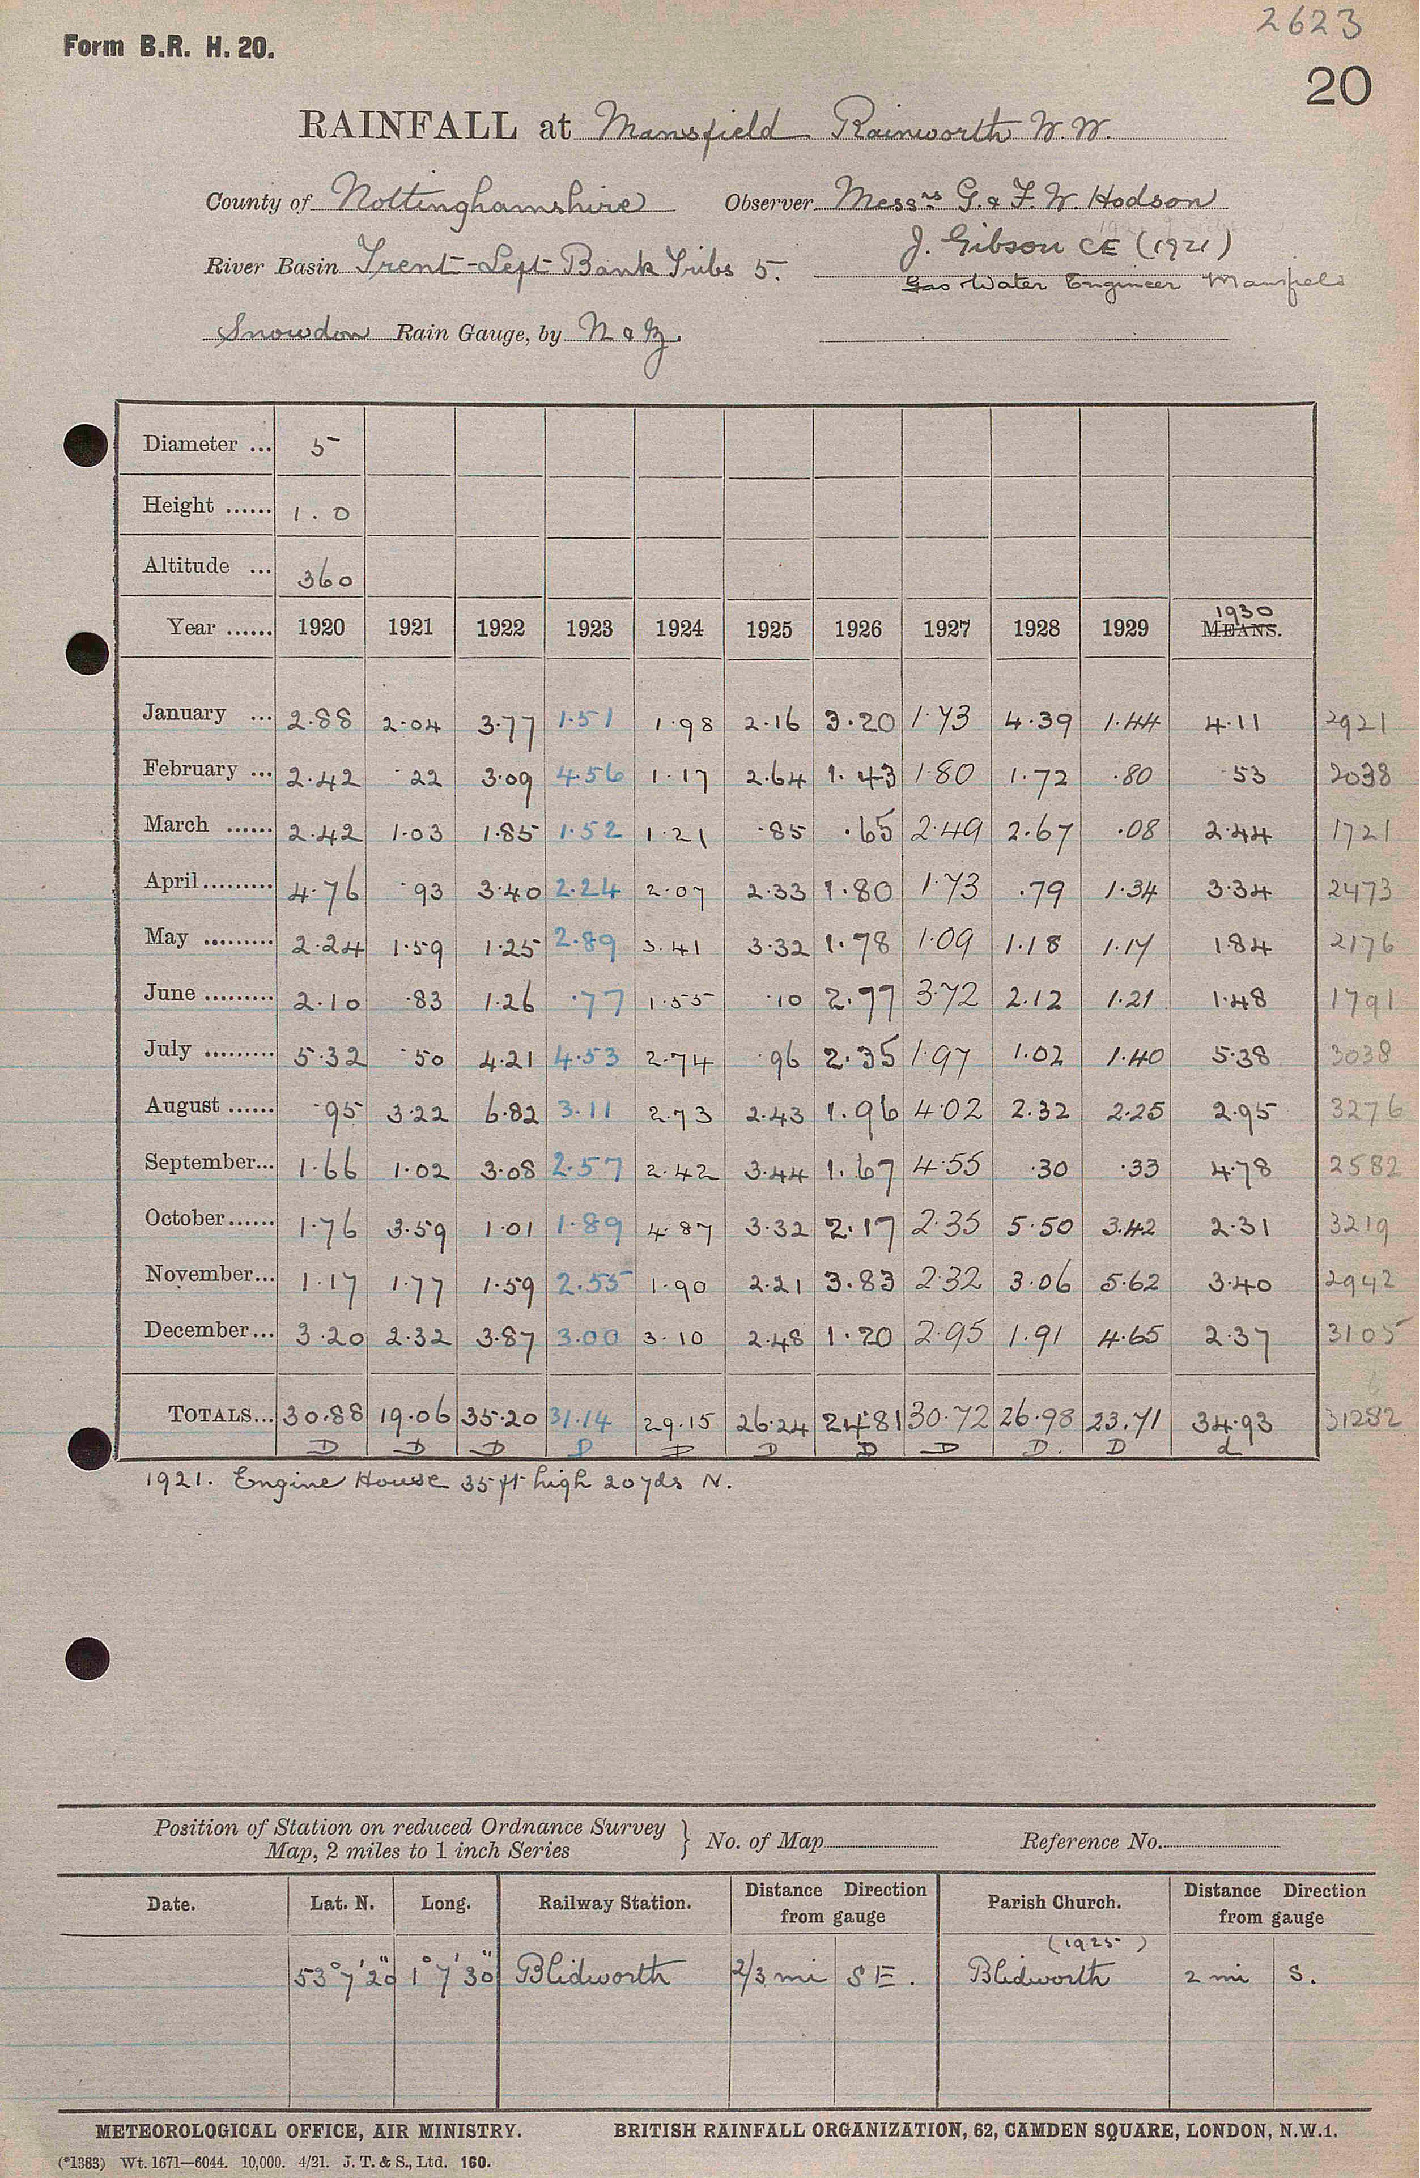 2623
Form B.R. H. 20.
20
RAINFALL at Mansfield Rainworth W.W.
County of Nottinghamshire Observer Messrs G. & F. W. Hodson
River Basin Trent-Left Bank Tribs 5. J. Gibson CE (1921)
Gas Water Engineer Mansfield
Snowdon Rain Gauge, by N & Z.
Diameter ... 5
Height ...... 1.0
Altitude ... 360
Year ...... 1920 1921 1922 1923 1924 1925 1926 1927 1928 1929 1930 MEANS.
January ... 2.88 2.04 3.77 1.51 1.98 2.16 3.20 1.73 4.39 1.44 4.11 2921
February ... 2.42 .22 3.09 4.56 1.17 2.64 1.43 1.80 1.72 .80 .53 2038
March ...... 2.42 1.03 1.85 1.52 1.21 .85 .65 2.49 2.67 .08 2.44 1721
April ......... 4.76 .93 3.40 2.24 2.07 2.33 1.80 1.73 .79 1.34 3.34 2473
May ......... 2.24 1.59 1.25 2.89 3.41 3.32 1.78 1.09 1.18 1.17 1.84 2176
June ......... 2.10 .83 1.26 .77 1.55 .10 2.77 3.72 2.12 1.21 1.48 1791
July ......... 5.32 .50 4.21 4.53 2.74 .96 2.35 1.97 1.02 1.40 5.38 3038
August ...... .95 3.22 6.82 3.11 2.73 2.43 1.96 4.02 2.32 2.25 2.95 3276
September... 1.66 1.02 3.08 2.57 2.42 3.44 1.67 4.55 .30 .33 4.78 2582
October ...... 1.76 3.59 1.01 1.89 4.87 3.32 2.17 2.35 5.50 3.42 2.31 3219
November... 1.17 1.77 1.59 2.55 1.90 2.21 3.83 2.32 3.06 5.62 3.40 2942
December... 3.20 2.32 3.87 3.00 3.10 2.48 1.20 2.95 1.91 4.65 2.37 3105
TOTALS... 30.88 19.06 35.20 31.14 29.15 26.24 24.81 30.72 26.98 23.71 34.93 31282
D D D D D D D D D. D d
1921. Engine House 35 ft high 20 yds N.
Position of Station on reduced Ordnance Survey
Map, 2 miles to 1 inch Series } No. of Map Reference No.
Date. Lat. N. Long. Railway Station. Distance Direction from gauge Parish Church. Distance Direction from gauge
(1925)
53° 7' 20" 1° 7' 30" Blidworth 2/3 mi SE. Blidworth 2 mi S.
METEOROLOGICAL OFFICE, AIR MINISTRY. BRITISH RAINFALL ORGANIZATION, 62, CAMDEN SQUARE, LONDON, N.W.1.
(*1383) Wt. 1671—6044. 10,000. 4/21. J. T. & S., Ltd. 160.